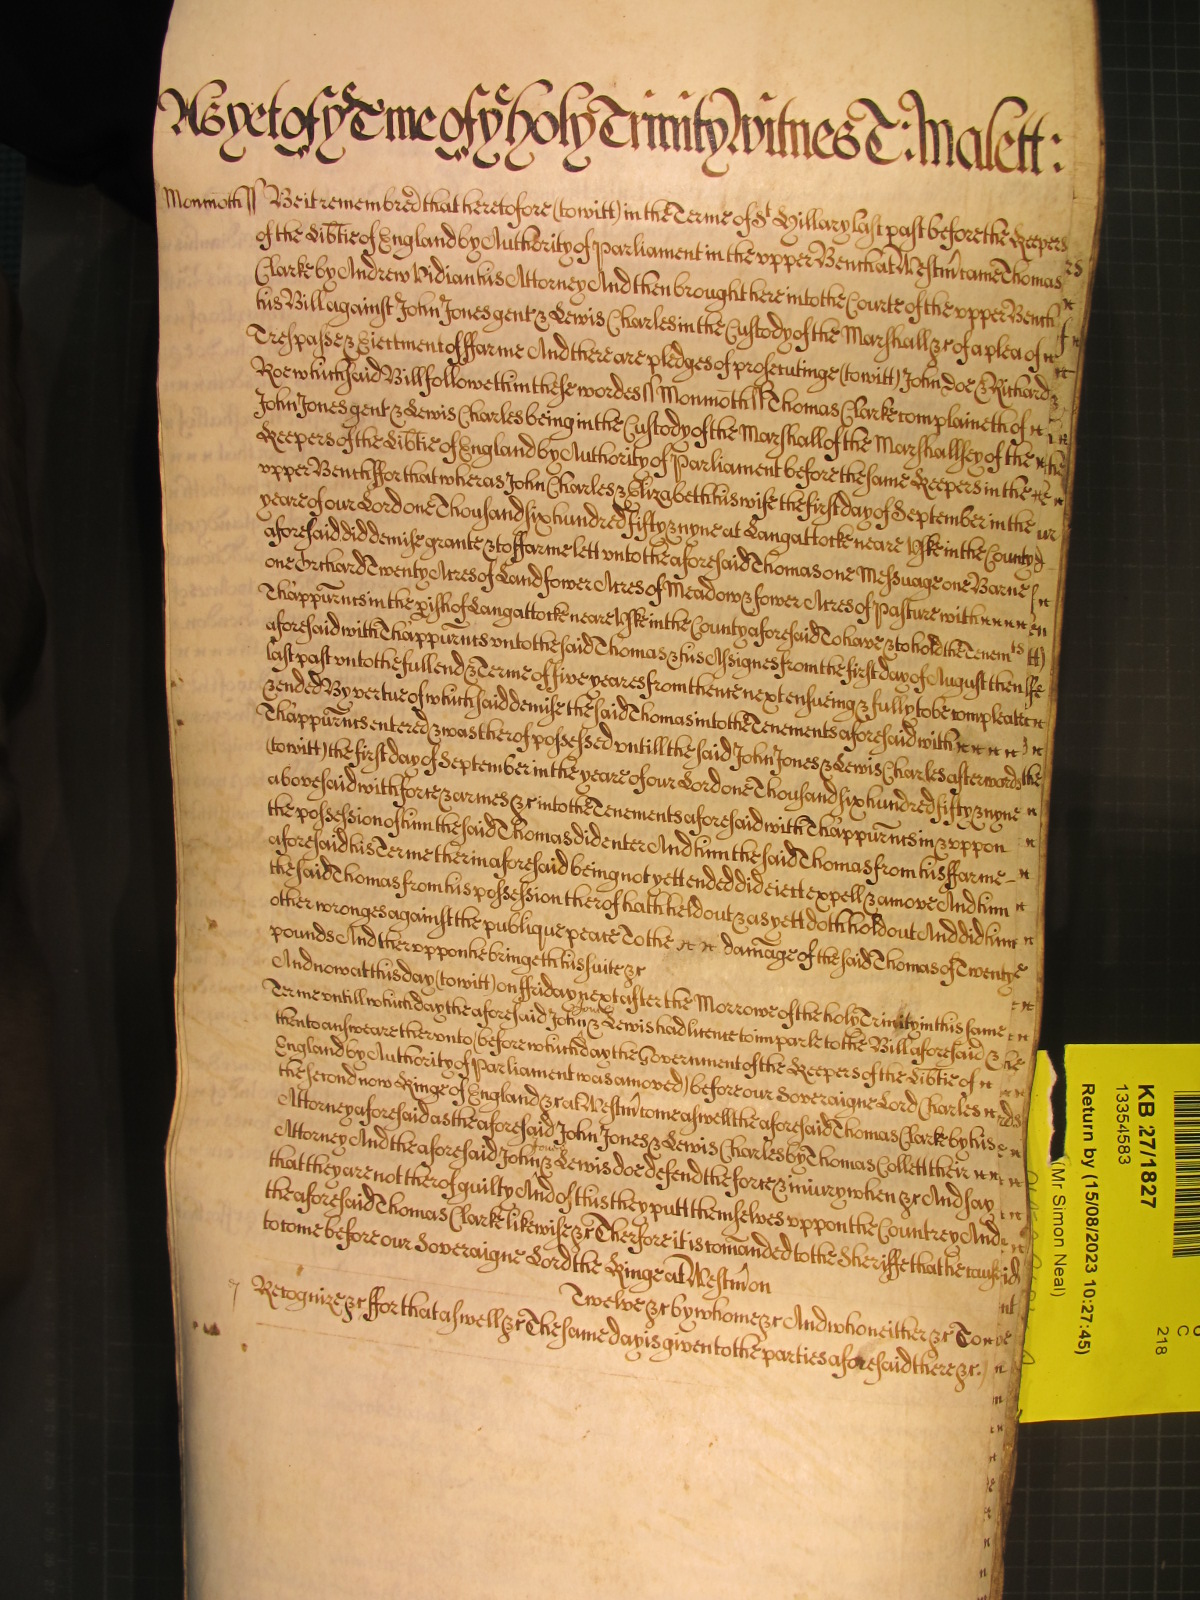 As yet of yͤ Tme of yͤ holy Trinity Witnes T: Malett:
Monmoth ss Be it remembred that heretofore (to witt) in the Terme of Sᵗ Hillary last past before the Keepers
of the Libtie of England by Authority of Parliament in the vpper Bench at Westm̃ came Thomas
Clarke by Andrew Vidian his Attorney And then brought here into the Courte of the vpper Bench
his Bill against John Jones gent & Lewis Charles in the Custody of the Marshall &c of a plea of
Trespasse & Eiectment of ffarme And there are pledges of prosecutinge (to witt) John Doe & Richard
Roe which said Bill followeth in these wordes ss Monmoth ss Thomas Clarke complaineth of
John Jones gent & Lewis Charles being in the Custody of the Marshall of the Marshallsey of the
Keepers of the Libtie of England by Authority of Parliament before the same Keepers in the
vpper Bench ffor that wheras John Charles & Elizabeth his wife the first day of September in the
yeare of our Lord one Thousand six hundred fifty & nyne at Langattocke neare Vske in the County
aforesaid did demise grante & to ffarme lett vnto the aforesaid Thomas one Messuage one Barne
one Orchard Twenty Acres of Land fower Acres of Meadow & fower Acres of Pasture with
Thappurn̄ts in the pish of Langattocke neare Vske in the County aforesaid To have & to hold the Tenemᵗˢ
aforesaid with Thappurn̄ts vnto the said Thomas & his Assignes from the first day of August then
last past vnto the full end & Terme of five yeares from thence next ensueing & fully to be compleate
& ended By vertue of which said demise the said Thomas into the Tenements aforesaid with
Thappurn̄ts entered & was therof possessed vntill the said John Jones & Lewis Charles afterwards
(to witt) the first day of September in the yeare of our Lord one Thousand six hundred fifty & nyne
abovesaid with force & armes &c into the Tenements aforesaid with Thappurn̄ts in & vppon
the possession of him the said Thomas did enter And him the said Thomas from his ffarme
aforesaid his Terme therin aforesaid being not yett ended did eiect expell & amove And him
the said Thomas from his possession therof hath held out & as yett doth hold out And did him
other wronges against the publique peace To the damage of the said Thomas of Twenty
pounds And thervppon he bringeth his suite &c
And now at this day (to witt) on ffriday next after the Morrowe of the holy Trinity in this same
Terme vntill which day the aforesaid John Jones & Lewis had licence to imparle to the Bill aforesaid &
then to answeare thervnto (before which day the Government of the Keepers of the Libtie of
England by Authority of Parliament was amoved) before our Soveraigne Lord Charles
the second now Kinge of England &c at Westm̃ come aswell the aforesaid Thomas Clarke by his
Attorney aforesaid as the aforesaid John Jones & Lewis Charles by Thomas Collett their
Attorney And the aforesaid John Jones & Lewis doe defend the force & iniury when &c And say
that they are not therof guilty And of this they putt themselves vppon the Countrey And
the aforesaid Thomas Clarke likewise &c Therfore it is com̄anded to the Sheriffe that he cause
to come before our Soveraigne Lord the Kinge at Westm̃ on
Twelve &c by whome &c And who neither &c To
Recognize &c ffor that aswell &c The same day is given to the parties aforesaid there &c.
KB 27/1827
13354583
Return by (15/08/2023 10:27:45)
(Mr Simon Neal)
C
218